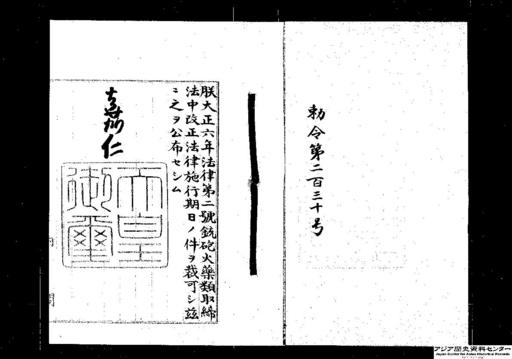 勅令第二百三十号
朕大正六年法律第二號銃砲火藥類取締
法中改正法律施行期日ノ件ヲ裁可シ茲
ニ之ヲ公布セシム
嘉仁
天皇
御璽
アジア歴史資料センター
Japan Center for Asian Historical Records